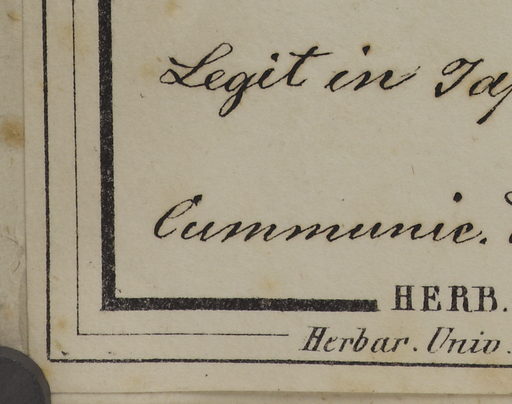 Legit in
Cummunic.
HERB.
Herbar. Univ.